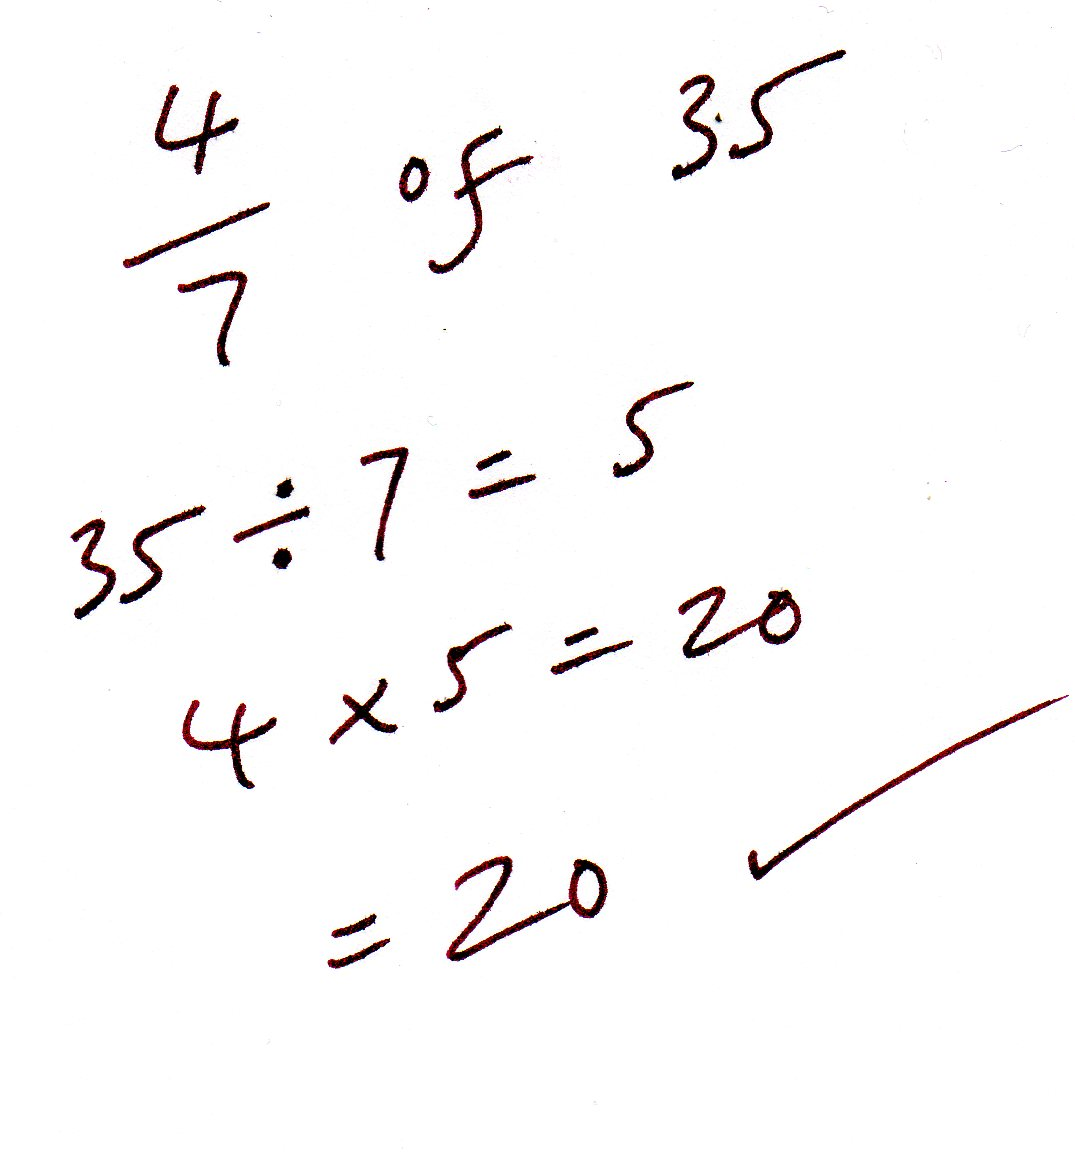 4/7 of 35
35 ÷ 7 = 5
4 × 5 = 20
= 20 ✓